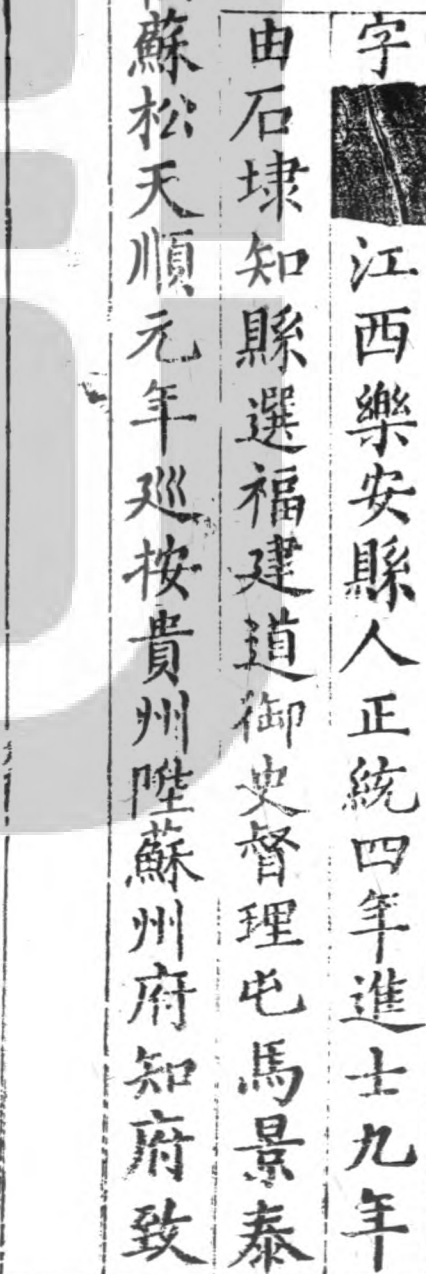 字■■江西樂安縣人正統四年進士九年
由石埭知縣選福建道御史督理屯馬景泰
蘇松天順元年廵按貴州陞蘇州府知府致